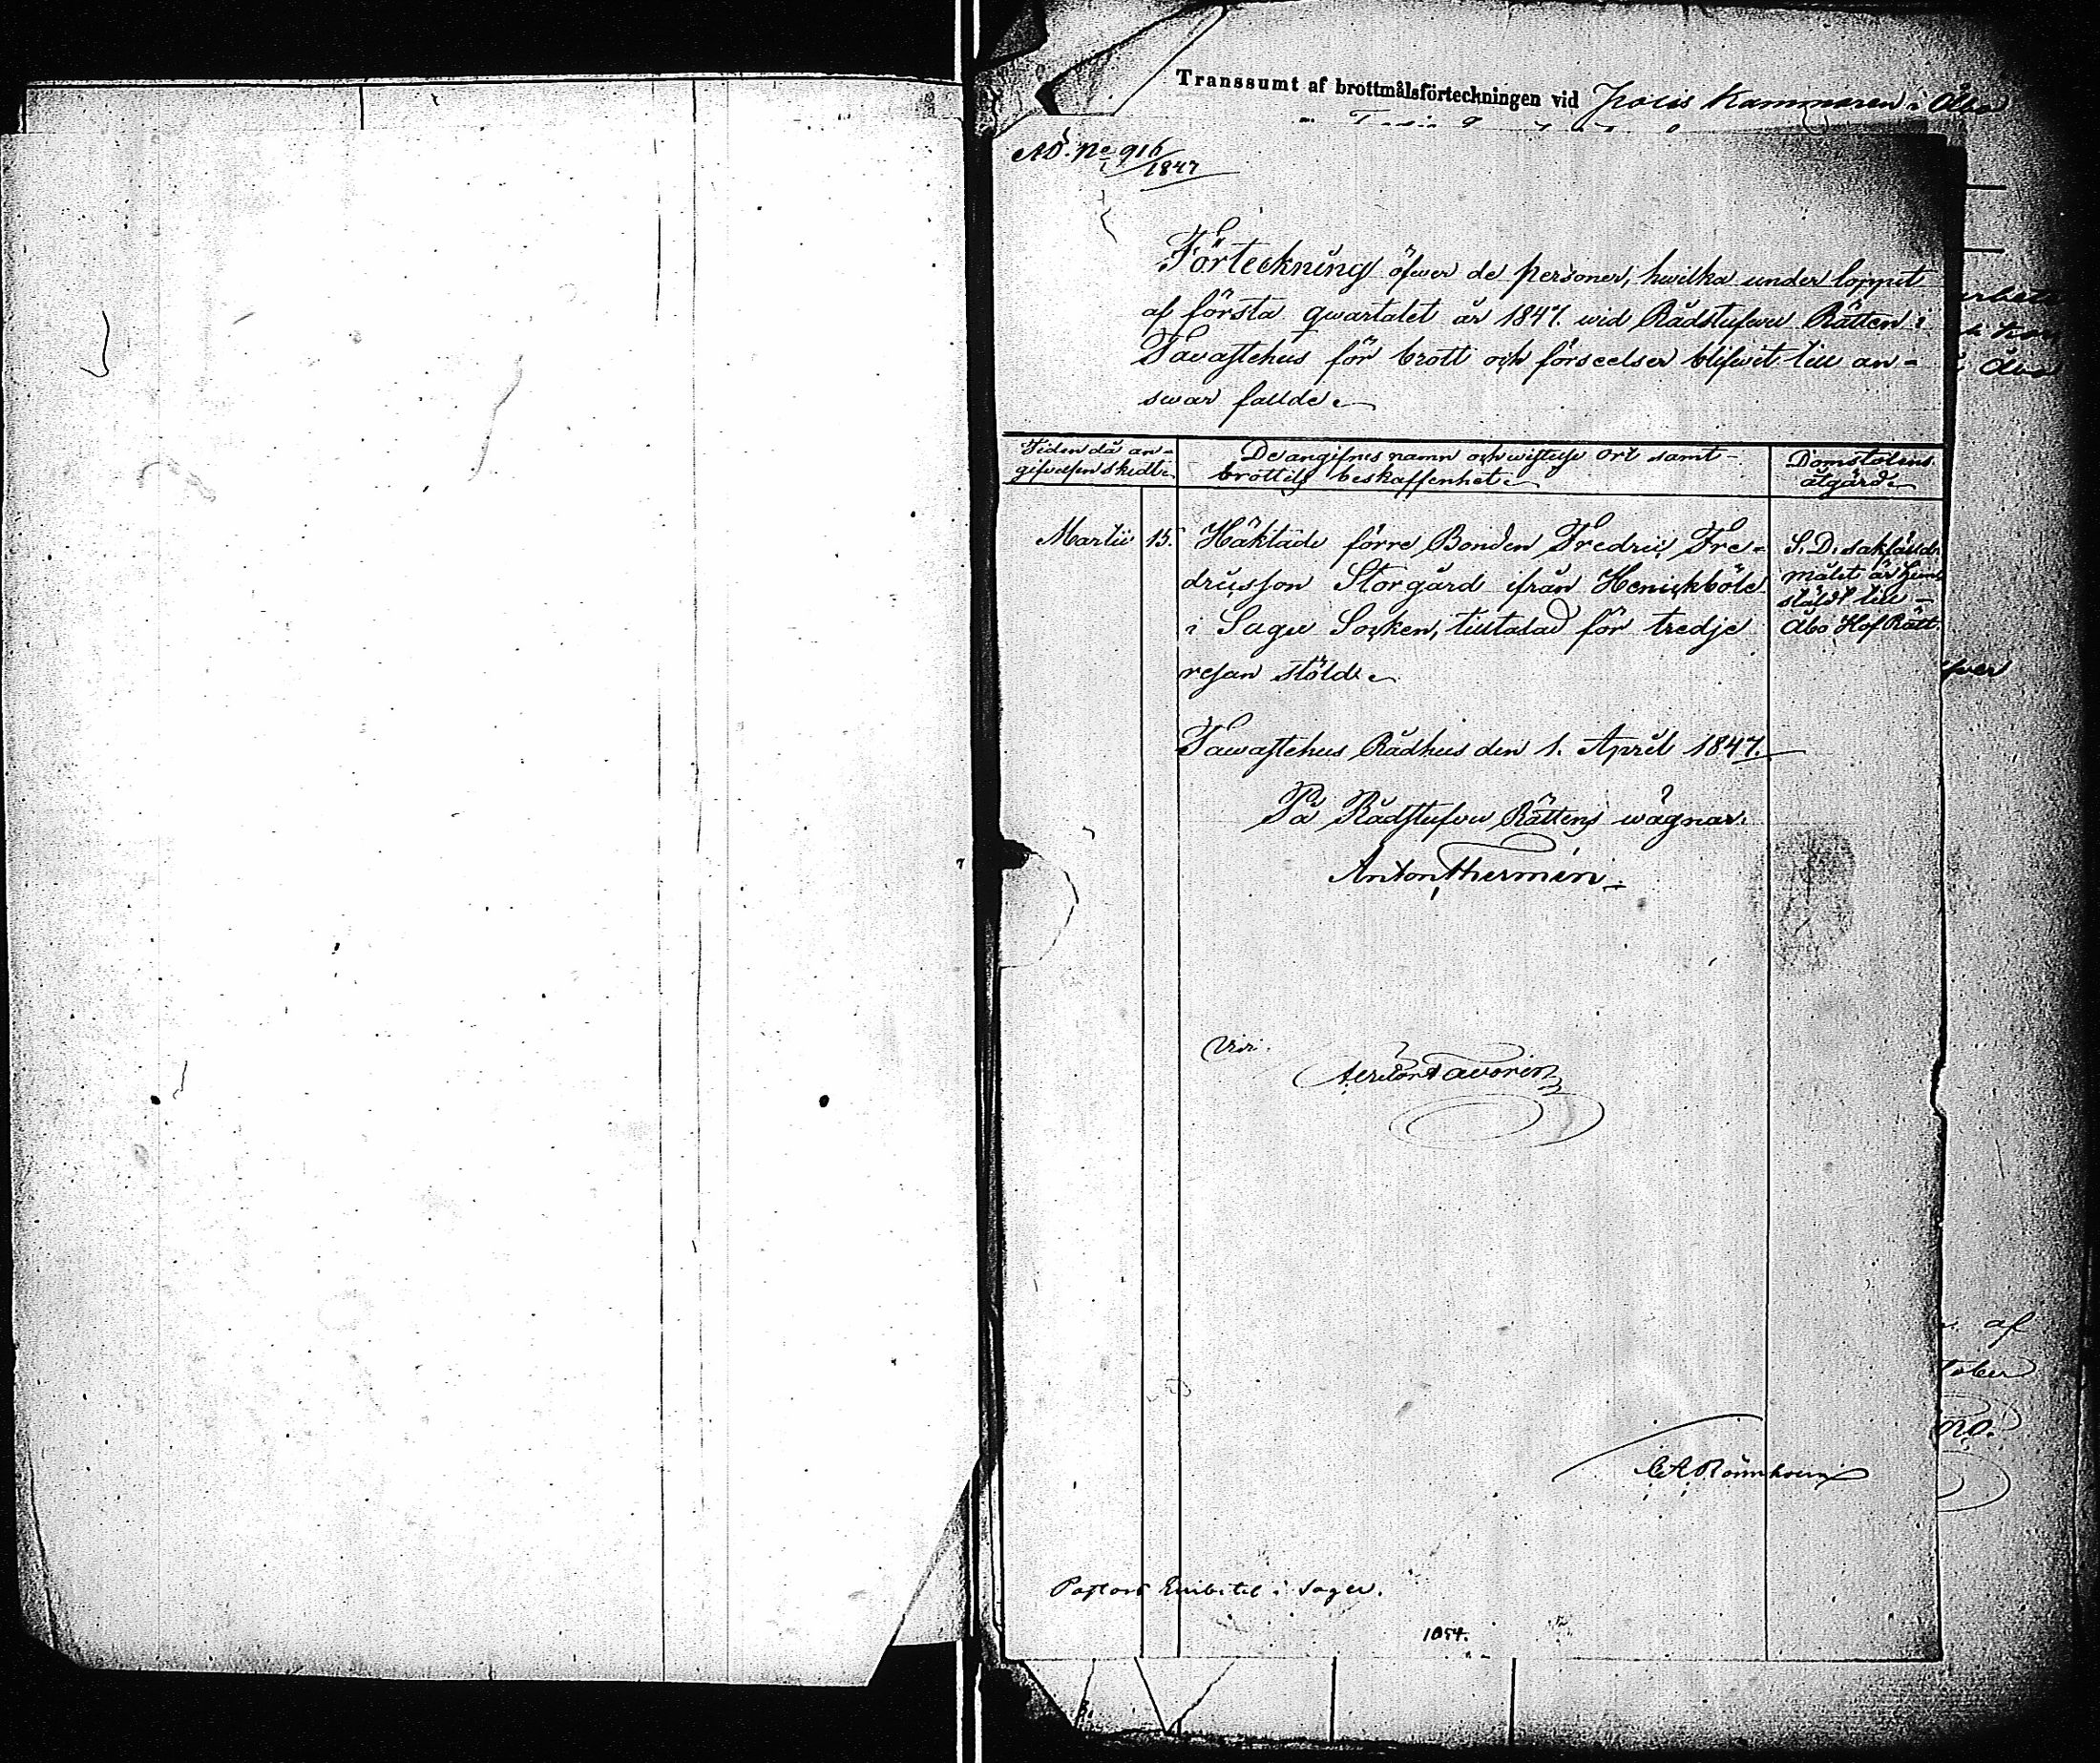 Transsumt af brottmålsförteckningen vid Polis Kammaren i Åbo
AD. No 916/1847
Förteckning öfwer de personer, hwilka under loppet
af första qwartalet år 1847. wid Rådstufwu Rätten i
Tavastehus för brott och förseelser blifwit till an-
swar fällde.
Tiden då an-
gifwelsen skedt.
De angifnes namn och wistelse ort samt
brottets beskaffenhet.
Domstolens
åtgärd.
Martii 15. Häktade förre Bonden Fredric Fre-
dricsson Storgård ifrån Henickböle
i Sagu Socken, tilltalad för tredje
resan stöld.
S. D. sakfälld.
målet är hem-
stäldt till
Åbo HofRätt.
Tawastehus Rådhus den 1. April 1847.
På Rådstufwu Rättens wägnar.
Anton Thermén
Vidi.
C A Rönnholm
Pastors Embetet i Sagu.
1054.
öfver
af
tober